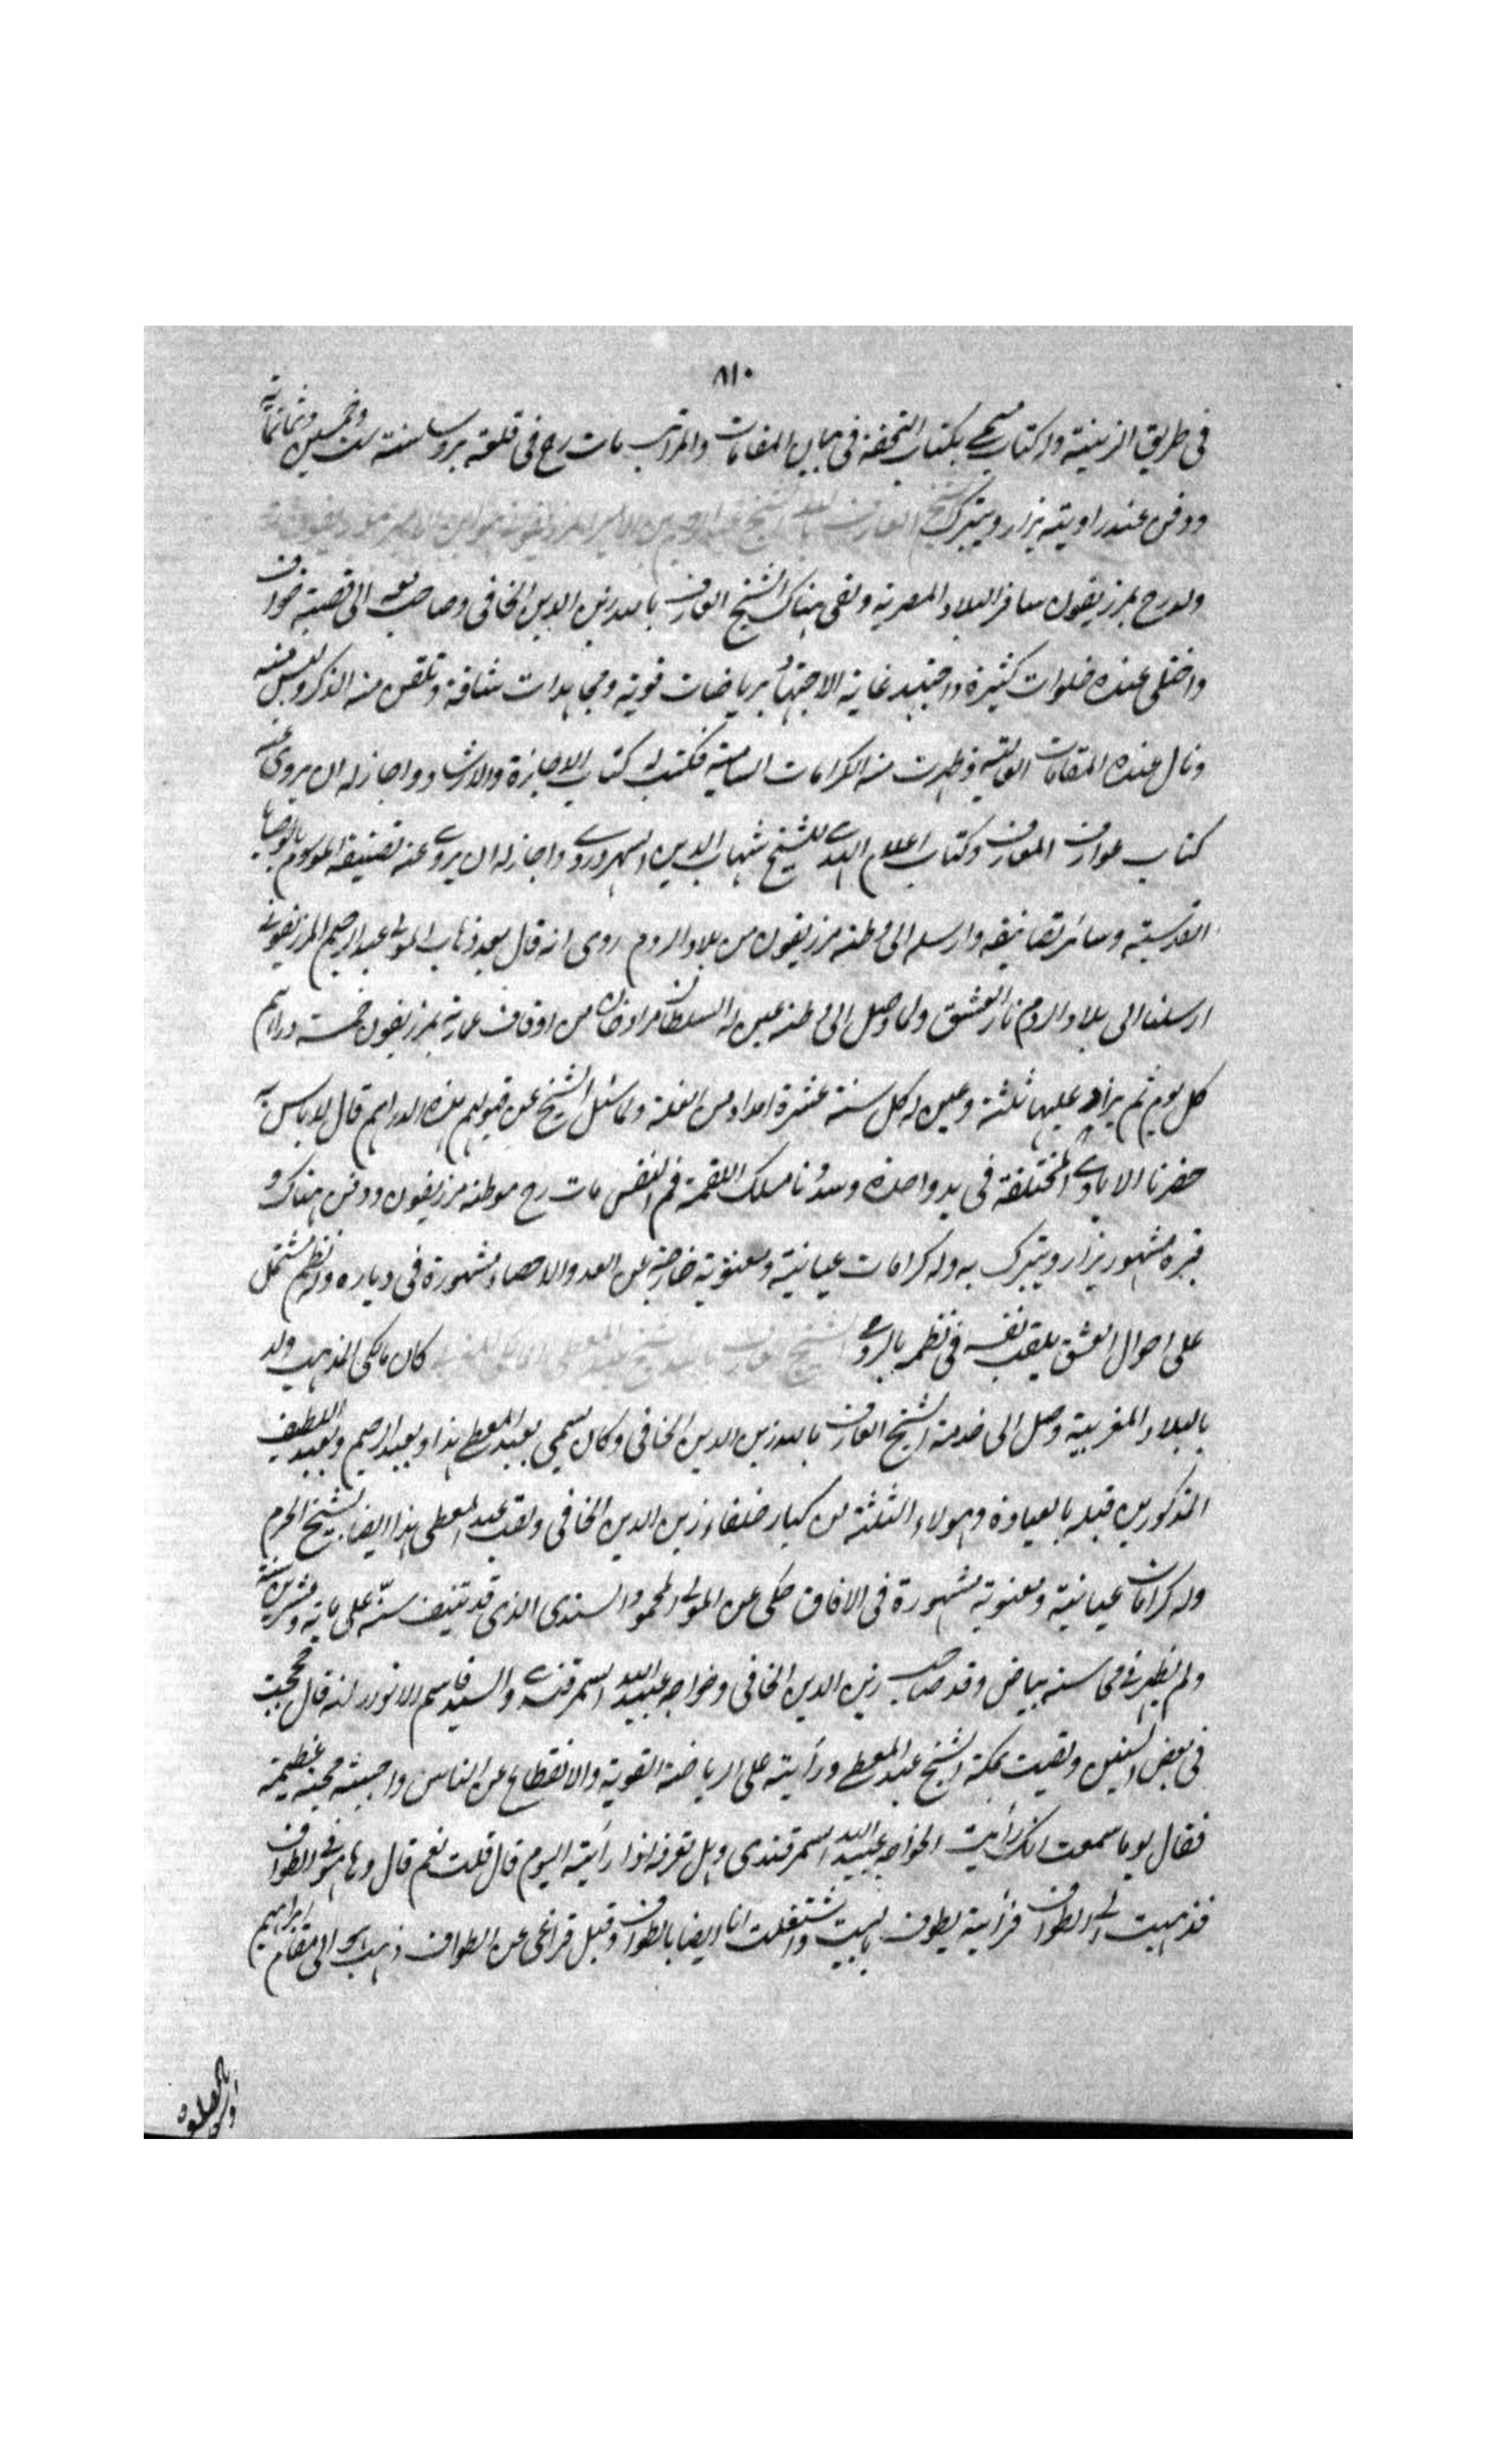 ٨١٠
فى طريق الزينية وله كتاب سمى بكتاب التحفة فى بيان المقامات والمراتب مات رح فى قلعة بروسا سنة ست وخمسين وثمانمائة
ودفن عند زاويته يزار ويتبرك الشيخ العارف بالله الشيخ عبد الرحيم بن الامير المرزيفونى
ولد رح بمرزيفون سافر البلاد المصرية ولقى هناك الشيخ العارف بالله زين الدين الخافى وصاحب معه الى قصبة خواف
واختلى عنده خلوات كثيرة واجتهد غاية الاجتهاد برياضات قوية ومجاهدات شاقة وتلقن منه الذكر ولبس منه
ونال عنده المقامات العالية وظهرت منه الكرامات السامية فكتب له كتاب الاجازة والارشاد واجاز له ان يروى عنه
كتاب عوارف المعارف وكتاب اعلام الهدى للشيخ شهاب الدين السهروردى واجاز له ان يروى عنه تصنيفه الموسوم بالوصايا
القدسية وسائر تصانيفه وارسله الى وطنه مرزيفون من بلاد الروم روى انه قال بعد ذهاب المولى عبد الرحيم المرزيفونى
ارسلنا الى بلاد الروم نار العشق ولما وصل الى وطنه عين له السلطان مراد خان من اوقاف عمارة بمرزيفون خمسة دراهم
كل يوم ثم يزاد عليها ثلثة وعين له كل سنة عشرة امداد من الغلة ولما سئل الشيخ عن قبولهم هذه الدراهم قال لا باس به
حضرنا الايادى المختلفة فى يد واحدة وسددنا مسلك اللقمة فم النفس مات رح بوطنه مرزيفون ودفن هناك و
قبره مشهور يزار ويتبرك به وله كرامات عيانية ومعنوية خارجة عن العد والاحصاء مشهورة فى دياره وله نظم مشتمل
على احوال العشق يلقب نفسه فى نظمه بالرومى الشيخ العارف بالله الشيخ عبد المعطى كان مالكى المذهب ولد
بالبلاد المغربية وصل الى خدمة الشيخ العارف بالله زين الدين الخافى وكان يسمى بعبد المعطى هذا وبعبد الرحيم وبعبد اللطيف
المذكورين قبله بالعبادة وهولاء الثلثة من كبار خلفاء زين الدين الخافى ولقب عبد المعطى هذا ايضا بشيخ الحرم
وله كرامات عيانية ومعنوية مشهورة فى الافاق حكى عن المولى المحمود السندى الذى قد تنيف سنه على مائة وعشرين سنة
ولم يظهر فى محاسنه بياض وقد صاحب زين الدين الخافى وخواجه عبيد الله السمرقندى والسيد قاسم الانوار انه قال حججت
فى بعض السنين ولقيت بمكة الشيخ عبد المعطى ورأيته على الرياضة القوية والانقطاع عن الناس واحببته محبة عظيمة
فقال يوما سمعت انك رأيت الخواجه عبيد الله السمرقندى وهل تعرفه اذا رأيته اليوم قال قلت نعم قال وها هو فى الطواف
فذهبت الى الطواف فرأيته يطوف بالبيت واشتغلت انا ايضا بالطواف وقبل فراغى عن الطواف ذهب هو الى مقام ابراهيم